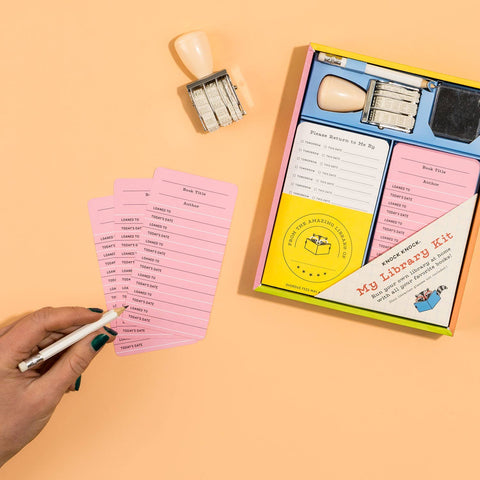 Book Title
Author
LOANED TO
TODAY'S DATE
LOANED TO
TODAY'S DATE
LOANED TO
TODAY'S DATE
LOANED TO
TODAY'S DATE
LOANED TO
TODAY'S DATE
LOANED TO
TODAY'S DATE
Please Return to Me By
TOMORROW
THIS DATE
TOMORROW
THIS DATE
TOMORROW
THIS DATE
TOMORROW
THIS DATE
TOMORROW
THIS DATE
FROM THE AMAZING LIBRARY OF
Book Title
Author
LOANED TO
TODAY'S DATE
LOANED TO
TODAY'S DATE
LOANED TO
TODAY'S DATE
KNOCK KNOCK.
My Library Kit
Run your own library at home
with all your favorite books!